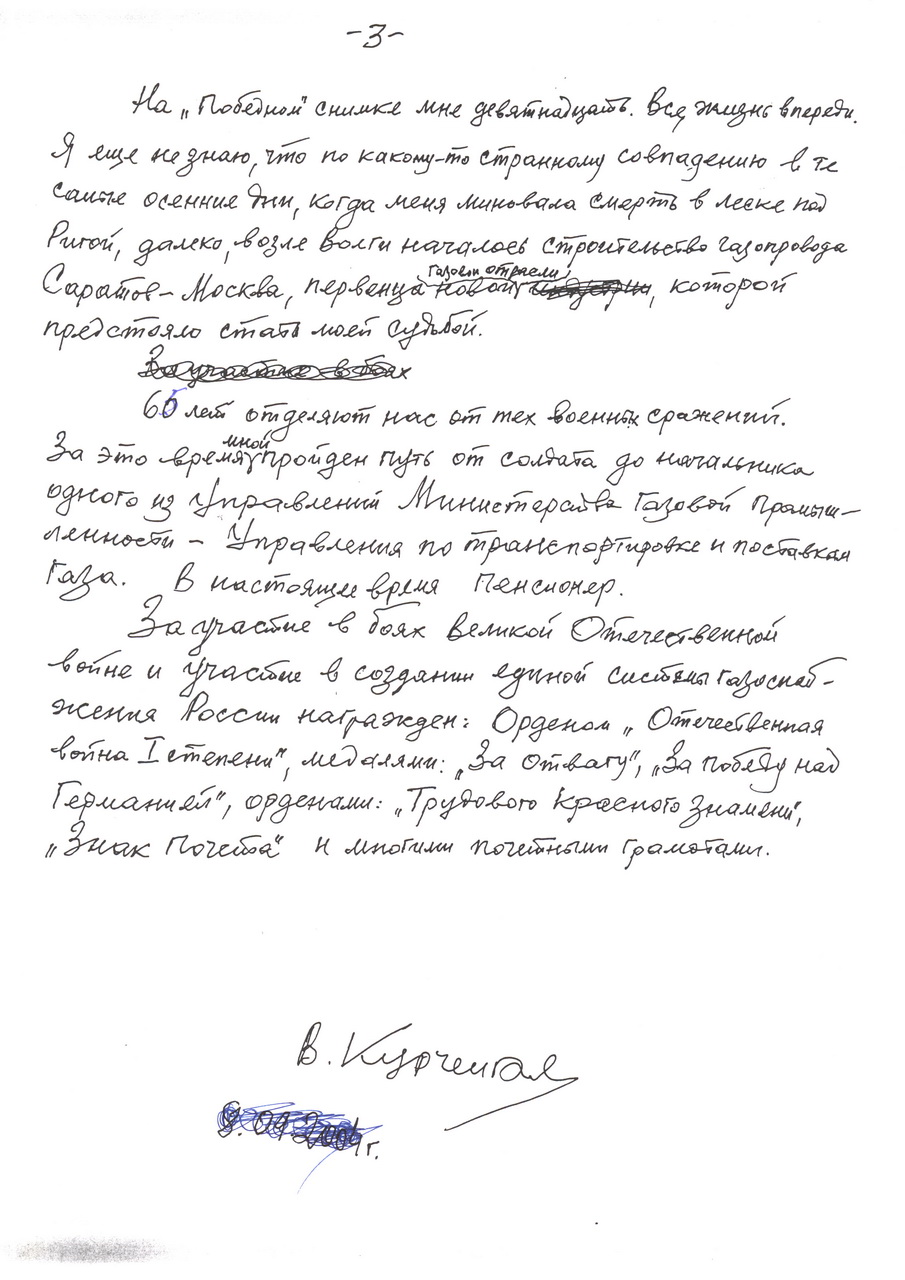 -3-
На „Победном" снимке мне девятнадцать. Вся жизнь впереди.
Я еще не знаю, что по какому-то странному совпадению в те
самые осенние дни, когда меня миновала смерть в леске под
Ригой, далеко, возле Волги началось строительство газопровода
Саратов - Москва, первенца новой газовой отрасли, которой
предстояло стать моей судьбой.
За участие в боях
65 лет отделяют нас от тех военных сражений.
За это время мной пройден путь от солдата до начальника
одного из Управлений Министерства Газовой Промыш-
ленности - Управления по транспортировке и поставкам
Газа. В настоящее время пенсионер.
За участие в боях Великой Отечественной
войне и участие в создании единой системы газоснаб-
жения России награжден: Орденом „Отечественная
война I степени", медалями: „За отвагу", „За победу над
Германией", орденами: „Трудового Красного Знамени",
„Знак Почета" и многими почетными грамотами.
В.
г.